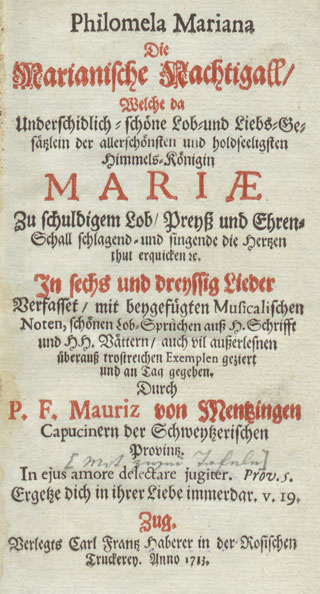 Philomela Mariana
Die
Marianische Nachtigall/
Welche da
Underschidlich-schöne Lob-und Liebs-Ge-
sätzlein der allerschönsten und holdseeligsten
Himmels-Königin
MARIÆ
Zu schuldigem Lob/ Preyß und Ehren-
Schall schlagend- und singende die Hertzen
thut erquicken ꝛc.
In sechs und dreyssig Lieder
Verfasset/ mit beygefügten Musicalischen
Noten, schönen Lob-Sprüchen auß H. Schrifft
und H.H. Vättern/ auch vil außerlesnen
überauß trostreichen Exemplen geziert
und an Tag gegeben.
Durch
P. F. Mauriz von Mentzingen
Capucinern der Schweytzerischen
Provintz.
[Mit zwei Tafeln]
In ejus amore delectare jugiter. Prov. 5.
Ergetze dich in ihrer Liebe immerdar. v. 19.
Zug.
Verlegts Carl Frantz Haberer in der Rosischen
Truckerey. Anno 1713.